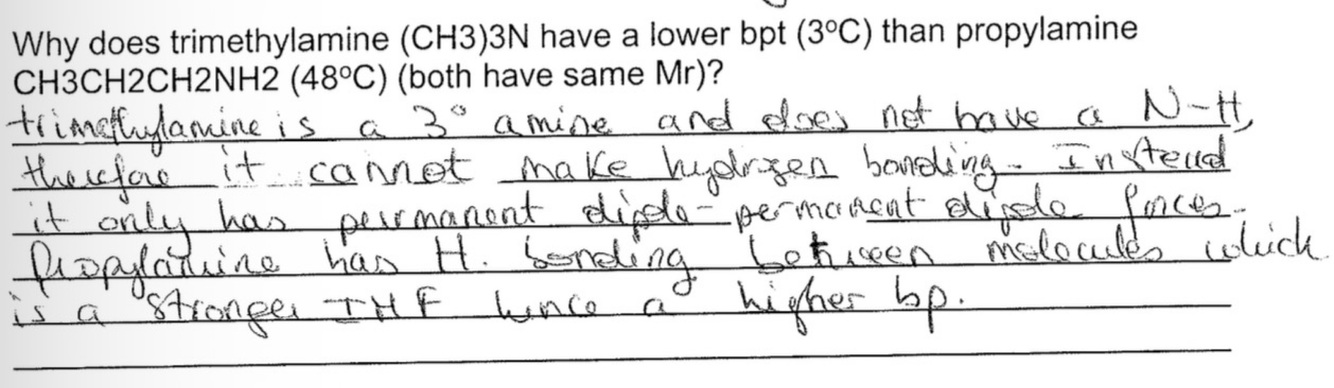 Why does trimethylamine (CH3)3N have a lower bpt (3ºC) than propylamine
CH3CH2CH2NH2 (48ºC) (both have same Mr)?
trimethylamine is a 3° amine and does not have a N-H,
therefore it cannot make hydrogen bonding. Instead
it only has permanent dipole-permanent dipole forces.
Propylamine has H. bonding between molecules which
is a stronger IMF hence a higher bp.